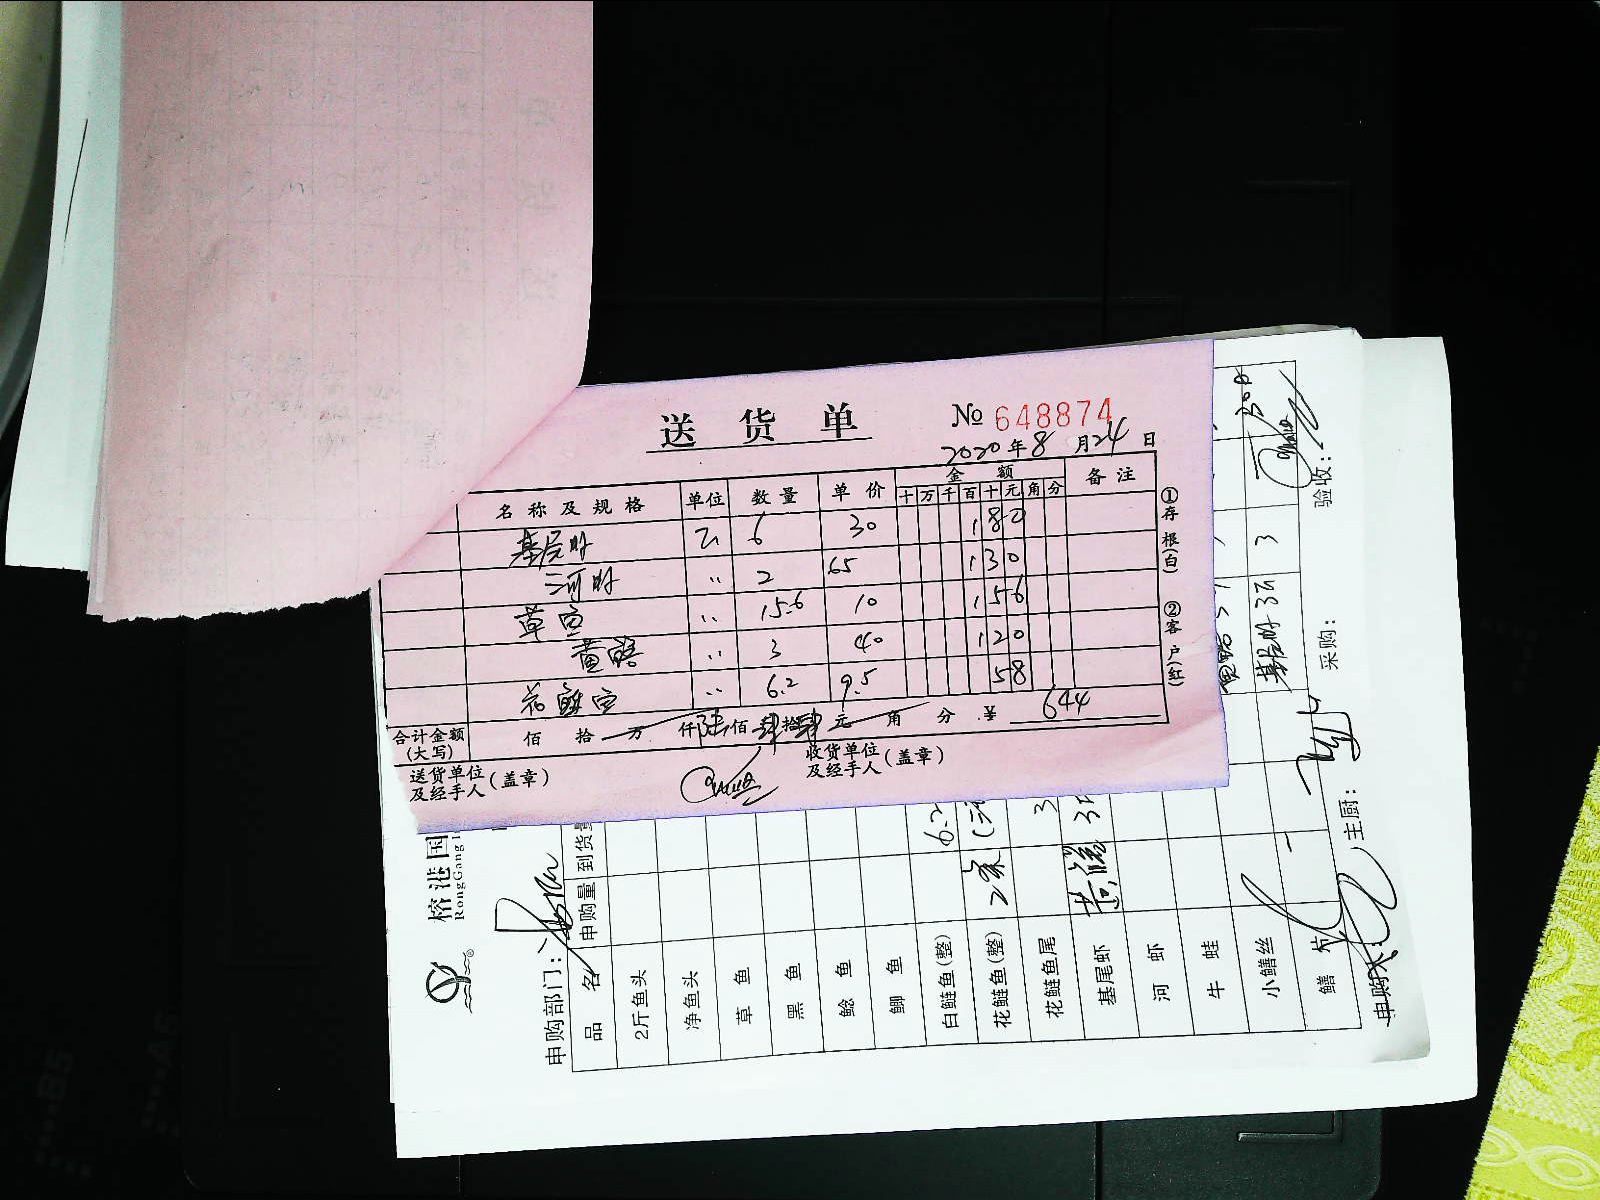 送货单
№ 648874
2020年8月24日
名称及规格 单位 数量 单价 金额 备注
十 万 千 百 十 元 角 分
基尾虾 斤 6 30 180
河虾 〃 2 65 130
草鱼 〃 15.6 10 156
黄鳝 〃 3 40 120
花鲢鱼 〃 6.2 9.5 58
合计金额(大写) 佰 拾 万 仟 陆佰 肆拾 肆元 角 分 ¥ 644
送货单位及经手人(盖章)
收货单位及经手人(盖章)
①存根(白) ②客户(红)
榕港国
RongGang
申购部门:
品名 申购量 到货量
2斤鱼头
净鱼头
草鱼
黑鱼
鲶鱼
鲴鱼
白鲢鱼(整) 6.2
花鲢鱼(整) 2条
花鲢鱼尾 3
基尾虾 黄鳝 3斤
河虾
牛蛙
小鳝丝
鳝
基尾虾 3斤 3
30日
申购人:
主厨:
采购:
验收: